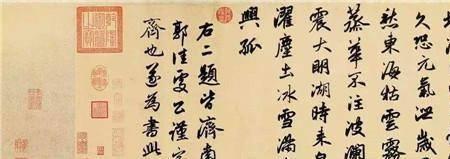 久恐元氣泄歲
東海枯雲霧
蒸華不注波瀾
震大明湖時来
濯塵土冰雪滿
興孤
右二題皆濟南
郭佳處公謹家
齊也遂為書此